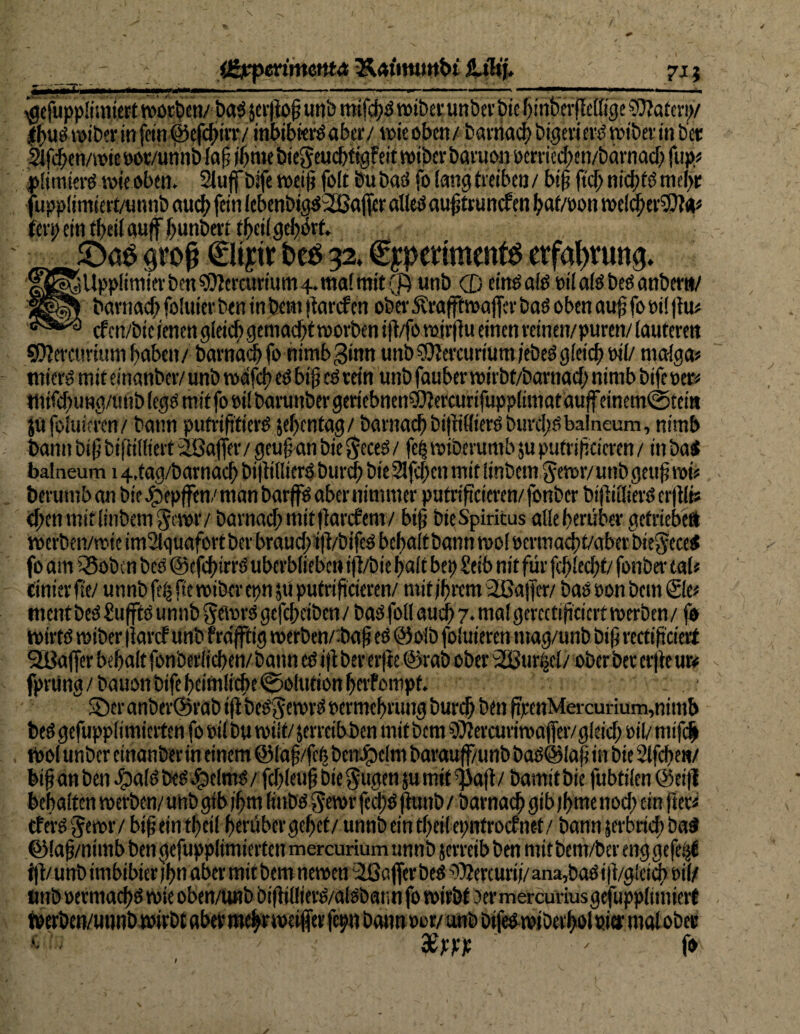 Experimenta Raimundi Lilij. 713
gesupplimiert worden/ das zerstoß und mischs wider under die hinderstellige Matery/
thus wider in sein Geschirr/ inbibiers aber/ wie oben/ darnach digeriers wider in der
Aschen/wie vor/unnd laß ihme die Feuchtigkeit wider daruon verriechen/darnach sup-
plimiers wie oben. Auff dise weiß solt du das so lang treiben/ biß sich nichts mehr
supplimiert/unnd auch sein lebendigs Wasser alles außtruncken hat/von welcher Ma-
tery ein theil auff hundert theil gehört.
Das groß Elixir des 32. Experiments erfahrung.
Supplimier den Mercurium 4. mal mit und eins als vil als des andern/
darnach soluier den in dem starcken oder Krafftwasser das oben auß so vil stu-
cken/die jenen gleich gemacht worden ist/so wirstu einen reinen/puren/ lauteren
Mercurium haben/ darnach so nimb Zinn und Mercurium jedes gleich vil/ malga-
miers mit einander/ und wäsch es biß es rein und sauber wirdt/darnach nimb dise ver-
mischung/und legs mit so vil darunder geriebnen Mercuri supplimat auff einem Stein
zu soluieren/ dann putrifitiers zehentag/ darnach distilliers durchs balneum, nimb
dann diß distilliert Wasser/ geuß an die Feces/ setz widerumb zu putrificieren/ in das
balneum 14. tag/darnach distilliers durch die Aschen mit lindem Fewr/ und geuß wi-
derumb an die Hepffen/ man darffs aber nimmer putrificieren/ sonder distilliers erstli-
chen mit lindem Fewr/ darnach mit starckem/ biß die Spiritus alle herüber getrieben
werden/wie im Aquafort der brauch ist/dises behalt dann wol vermacht/aber die Feces
so am Boden des Geschirrs uberblieben ist/die halt bey Leib nit für schlecht/ sonder cal-
cinier sie/ unnd setz sie wider eyn zu putrificieren/ mit ihrem Wasser/ das von dem Ele-
ment des Luffts unnd Fewrs gescheiden/ das soll auch 7. mal gerectificiert werden/ so
wirts wider starck und kräfftig werden/ daß es Gold soluieren mag/und diß rectificiert
Wasser behalt sonderlichen/ dann es ist der erste Grad oder Wurtzel/ oder der erste ur-
sprung/ dauon dise heimliche Solution herkompt.
Der ander Grad ist des Fewrs vermehrung durch den fixen Mercurium, nimb
des gesupplimierten so vil du wilt/ zerreib den mit dem Mercuriwasser/gleich vil/ misch
wol under einander in einem Glaß/setz den Helm darauff/und das Glaß in die Aschen/
biß an den Halß des Helms/ schleuß die Fugen zu mit Past/ damit die subtilen Geist
behalten werden/ und gib ihm linds Fewr sechs stund/ darnach gib ihme noch ein ster-
ckers Fewr/ biß ein theil herüber gehet/ unnd ein theil eyntrocknet/ dann zerbrich das
Glaß/nimb den gesupplimierten mercurium unnd zerreib den mit dem/der eng gesetzt
ist/ und imbibier ihn aber mit dem newen Wasser des Mercurij/ ana, das ist/gleich vil/
und vermachs wie oben/und distilliers/alsdann so wirdt der mercurius gesupplimiert
werden/unnd wirdt aber mehr weisser seyn dann vor/ und dises widerhol vier mal oder
Xxxx so